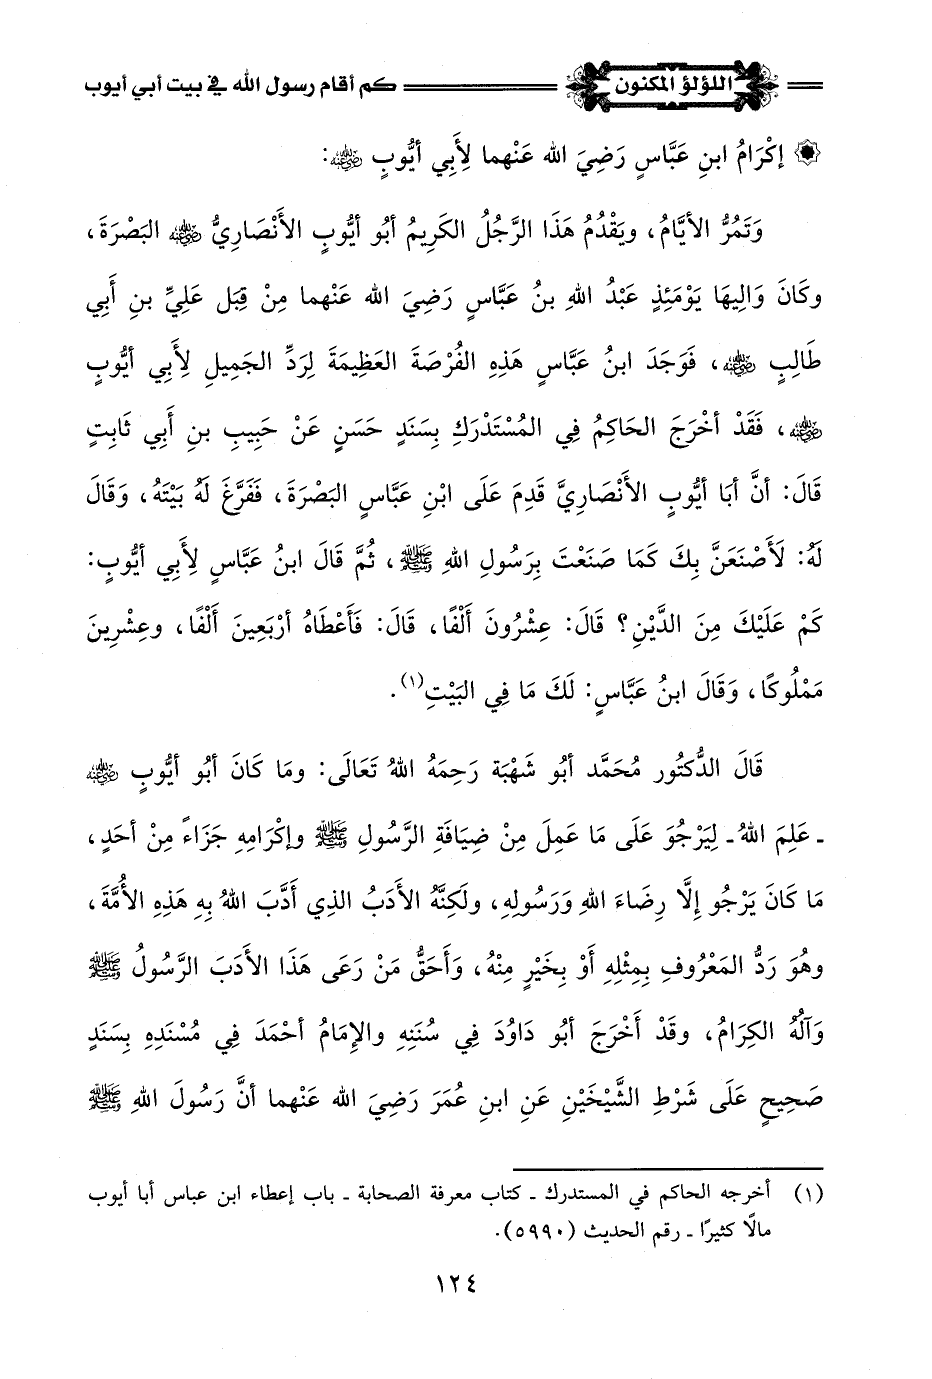 اللؤلؤ المكنون كم أقام رسول الله في بيت أبي أيوب
إكْرَامُ ابنِ عَبَّاسٍ رَضِيَ الله عَنْهما لِأَبِي أيُّوبٍ رضي الله عنه:
وَتَمُرُّ الأيَّامُ، ويَقْدُمُ هَذَا الرَّجُلُ الكَرِيمُ أبُو أيُّوبٍ الأَنْصَارِيُّ رضي الله عنه البَصْرَةَ،
وكَانَ وَالِيهَا يَوْمَئِذٍ عَبْدُ اللهِ بنُ عَبَّاسٍ رَضِيَ الله عَنْهما مِنْ قِبَل عَلِيِّ بنِ أَبِي
طَالِبٍ رضي الله عنه، فَوَجَدَ ابنُ عَبَّاسٍ هَذِهِ الفُرْصَةَ العَظِيمَةَ لِرَدِّ الجَمِيلِ لِأَبِي أيُّوبٍ
رضي الله عنه، فَقَدْ أخْرَجَ الحَاكِمُ فِي المُسْتَدْرَكِ بِسَنَدٍ حَسَنٍ عَنْ حَبِيبِ بنِ أَبِي ثَابِتٍ
قَالَ: أنَّ أبَا أيُّوبٍ الأَنْصَارِيَّ قَدِمَ عَلَى ابْنِ عَبَّاسٍ البَصْرَةَ، فَفَرَّغَ لَهُ بَيْتَهُ، وَقَالَ
لَهُ: لَأَصْنَعَنَّ بِكَ كَمَا صَنَعْتَ بِرَسُولِ اللهِ ﷺ، ثُمَّ قَالَ ابنُ عَبَّاسٍ لِأَبِي أيُّوبٍ:
كَمْ عَلَيْكَ مِنَ الدَّيْنِ؟ قَالَ: عِشْرُونَ أَلْفًا، قَالَ: فَأَعْطَاهُ أرْبَعِينَ أَلْفًا، وعِشْرِينَ
مَمْلُوكًا، وَقَالَ ابنُ عَبَّاسٍ: لَكَ مَا فِي البَيْتِ(١).
قَالَ الدُّكتُور مُحَمَّد أبُو شَهْبَة رَحِمَهُ اللهُ تَعَالَى: ومَا كَانَ أبُو أيُّوبٍ رضي الله عنه
ـ عَلِمَ اللهُ ـ لِيَرْجُوَ عَلَى مَا عَمِلَ مِنْ ضِيَافَةِ الرَّسُولِ ﷺ وإكْرَامِهِ جَزَاءً مِنْ أحَدٍ،
مَا كَانَ يَرْجُو إلَّا رِضَاءَ اللهِ وَرَسُولِهِ، ولَكِنَّهُ الأَدَبُ الذِي أَدَّبَ اللهُ بِهِ هَذِهِ الأُمَّةَ،
وهُوَ رَدُّ المَعْرُوفِ بِمِثْلِهِ أَوْ بِخَيْرٍ مِنْهُ، وَأَحَقُّ مَنْ رَعَى هَذَا الأَدَبَ الرَّسُولُ ﷺ
وَآلُهُ الكِرَامُ، وقَدْ أَخْرَجَ أبُو دَاوُدَ فِي سُنَنِهِ والإِمَامُ أحْمَدَ فِي مُسْنَدِهِ بِسَنَدٍ
صَحِيحٍ عَلَى شَرْطِ الشَّيْخَيْنِ عَنِ ابنِ عُمَرَ رَضِيَ الله عَنْهما أنَّ رَسُولَ اللهِ ﷺ
(١) أخرجه الحاكم في المستدرك ـ كتاب معرفة الصحابة ـ باب إعطاء ابن عباس أبا أيوب
مالًا كثيرًا ـ رقم الحديث (٥٩٩٠).
١٢٤